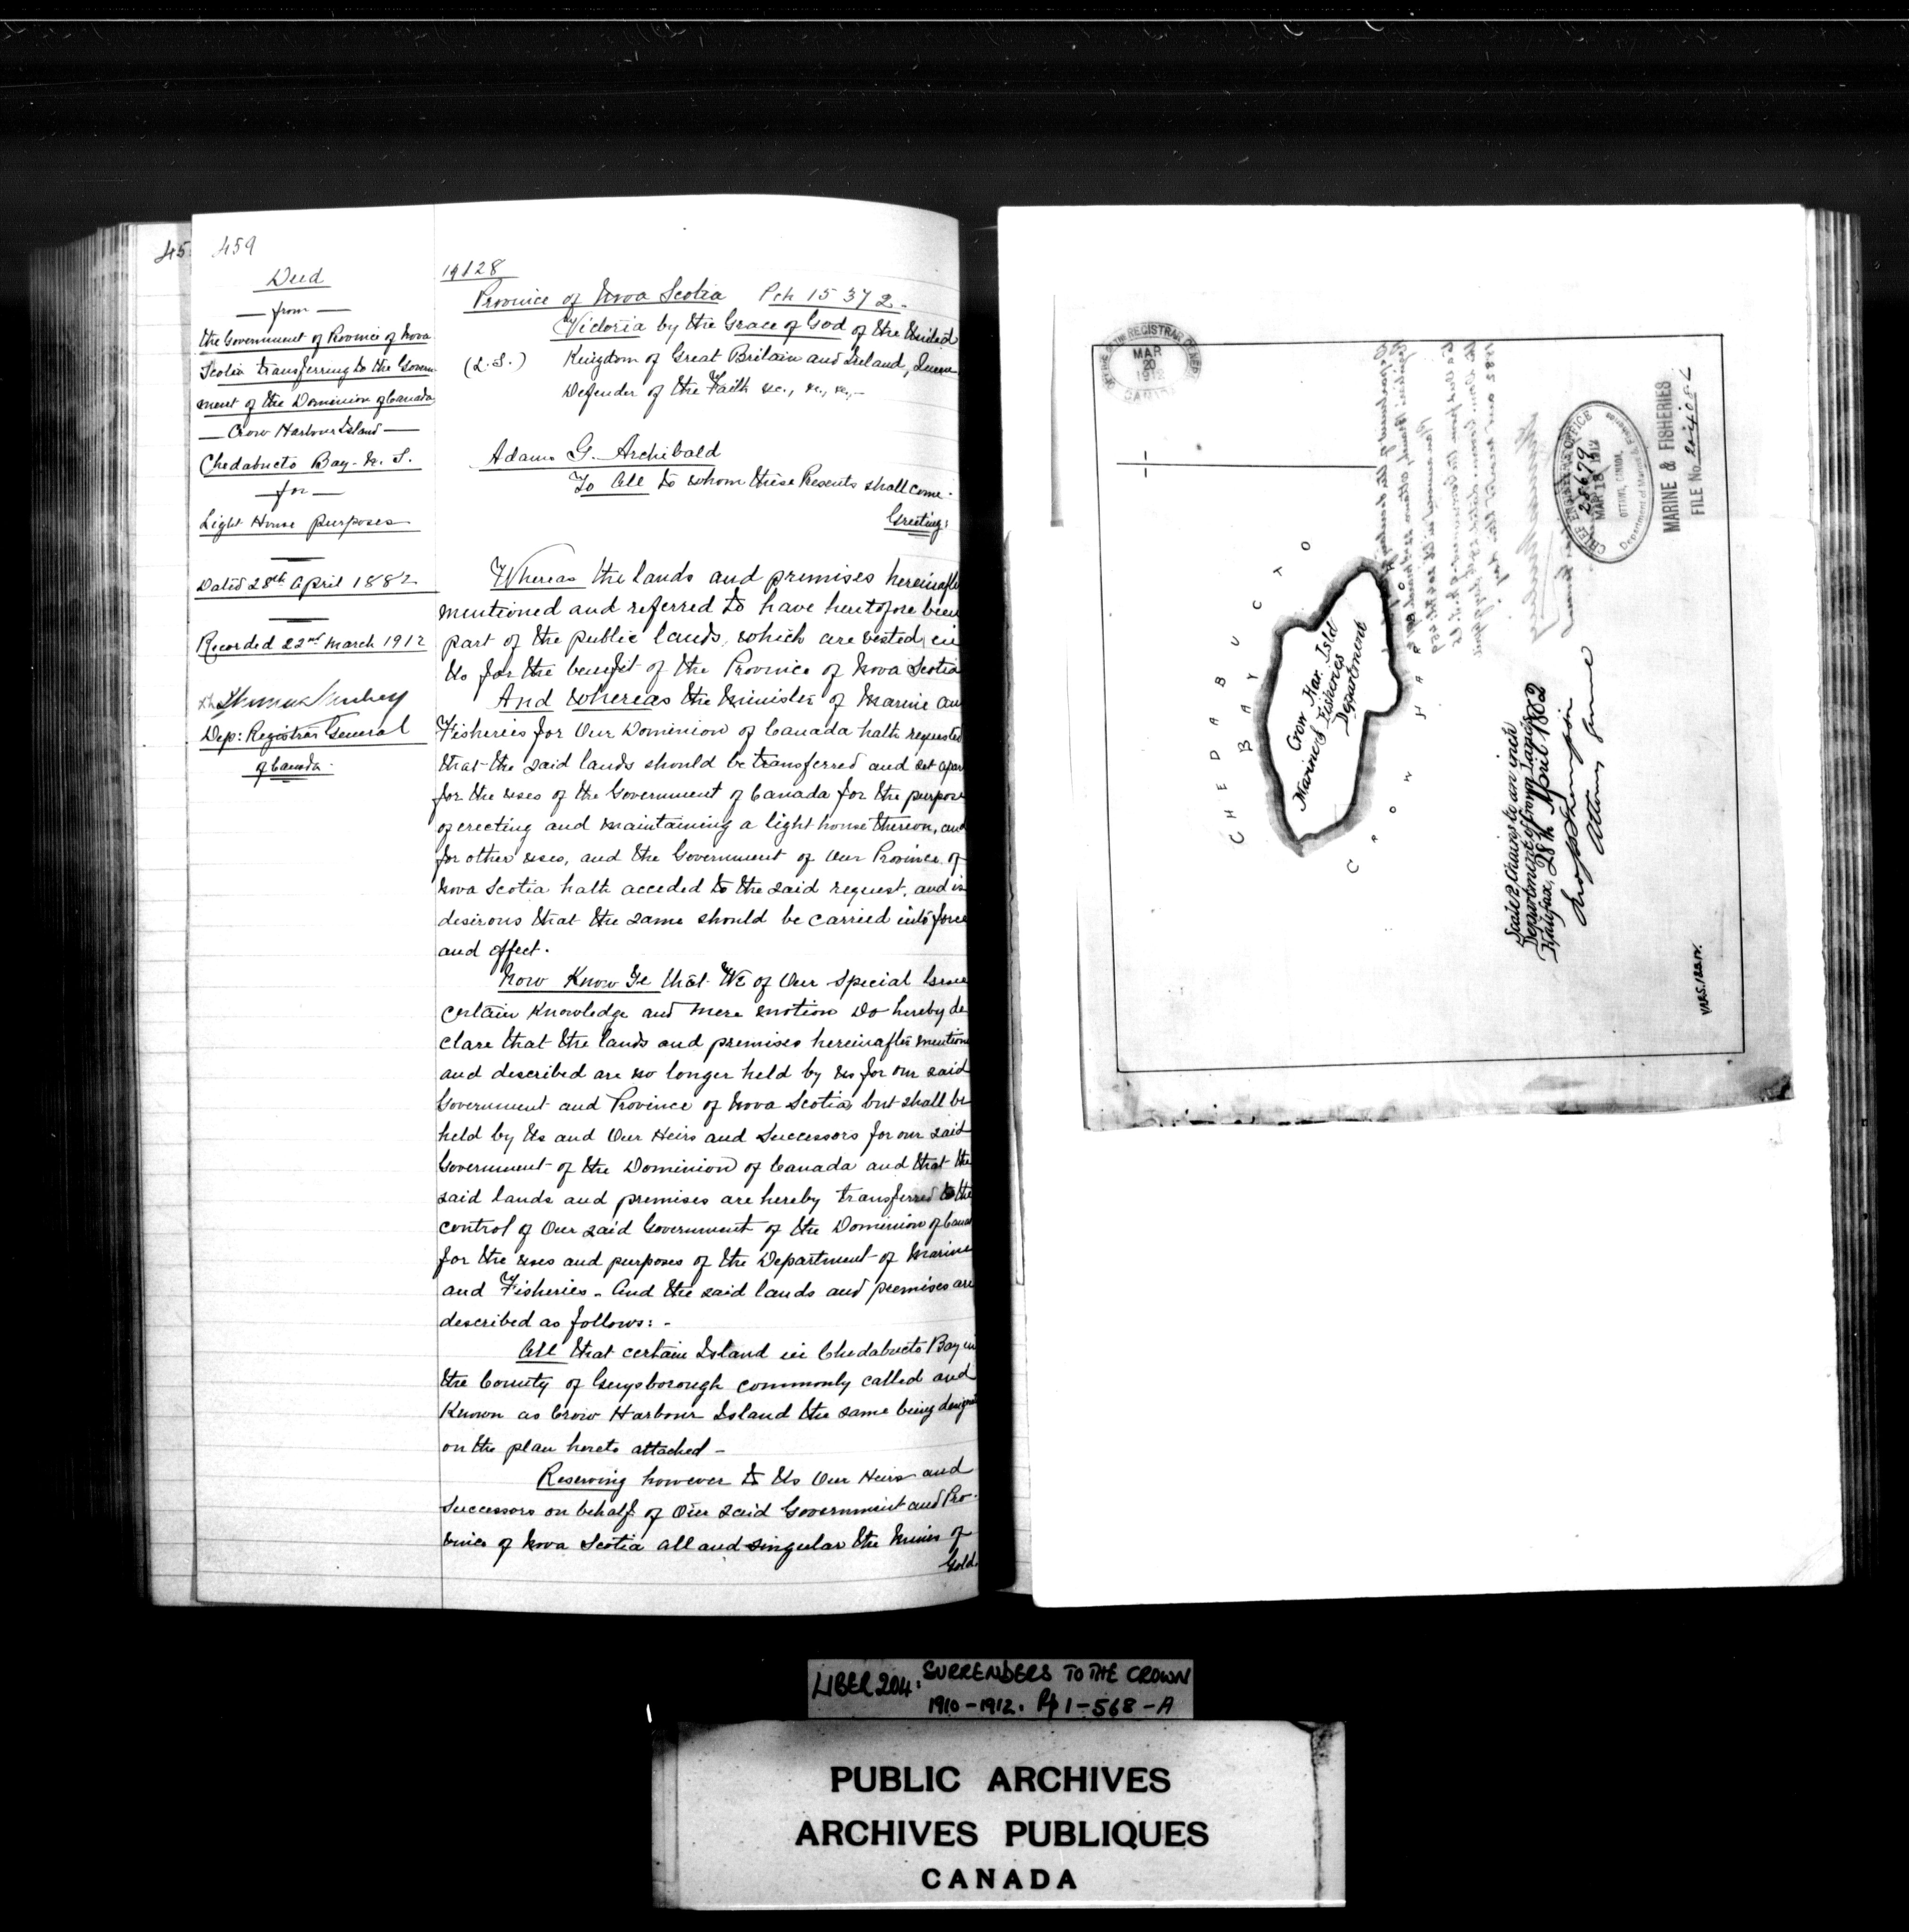 45
459
Deed
— from —
the Government of Province of Nova
Scotia transferring to the Govern
ment of the Dominion of Canada
— Crow Harbour Island —
Chedabucto Bay - N. S.
— for —
Light House purposes
Dated 28th April 1882
Recorded 22nd March 1912
Dep: Registrar General
of Canada.
19128
Province of Nova Scotia Pch 15372.
Victoria by the Grace of God of the United
(L.S.) Kingdom of Great Britain and Ireland, Queen
Defender of the Faith &c., &c., &c.,—
Adams G. Archibald
To All to whom these Presents shall come.
Greeting:
Whereas the lands and premises hereinafte
mentioned and referred to have heretofore been
part of the public lands, which are vested in
Us for the benefit of the Province of Nova Scotia
And whereas the Minister of Marine an
Fisheries for Our Dominion of Canada hath requested
that the said lands should be transferred and set apar
for the uses of the Government of Canada for the purpose
of erecting and maintaining a light house thereon, and
for other uses, and the Government of Our Province of
Nova Scotia hath acceded to the said request, and is
desirous that the same should be carried into force
and effect.
Now Know Ye that We of Our Special Grace
certain Knowledge and mere motion Do hereby de
clare that the lands and premises hereinafter mention
and described are no longer held by Us for our said
Government and Province of Nova Scotia, but shall be
held by Us and Our Heirs and Successors for our said
Government of the Dominion of Canada and that the
said lands and premises are hereby transferred to the
control of Our said Government of the Dominion of Cana
for the uses and purposes of the Department of Marine
and Fisheries - And the said lands and premises are
described as follows: -
All that certain Island in Chedabucto Bay in
the County of Guysborough commonly called and
Known as Crow Harbour Island the same being design
on the plan hereto attached -
Reserving however to Us Our Heirs and
Successors on behalf of Our said Government and Pro-
vince of Nova Scotia all and singular the Mines of
Gold
MAR
20
1912
CHEDABUCTO
BAY
Crow Har. Isld
Marine & Fisheries
Department
CROW HAR
Scale 2 Chains to an inch
Department of Crown Lands
Halifax, 28th April 1882
CHIEF ENGINEER'S OFFICE
28679
MAR 18 1912
OTTAWA, CANADA.
Department of Marine & Fisheries
MARINE & FISHERIES
FILE No.
LIBER 204: SURRENDERS TO THE CROWN
1910-1912. Pp 1-568-A
PUBLIC ARCHIVES
ARCHIVES PUBLIQUES
CANADA